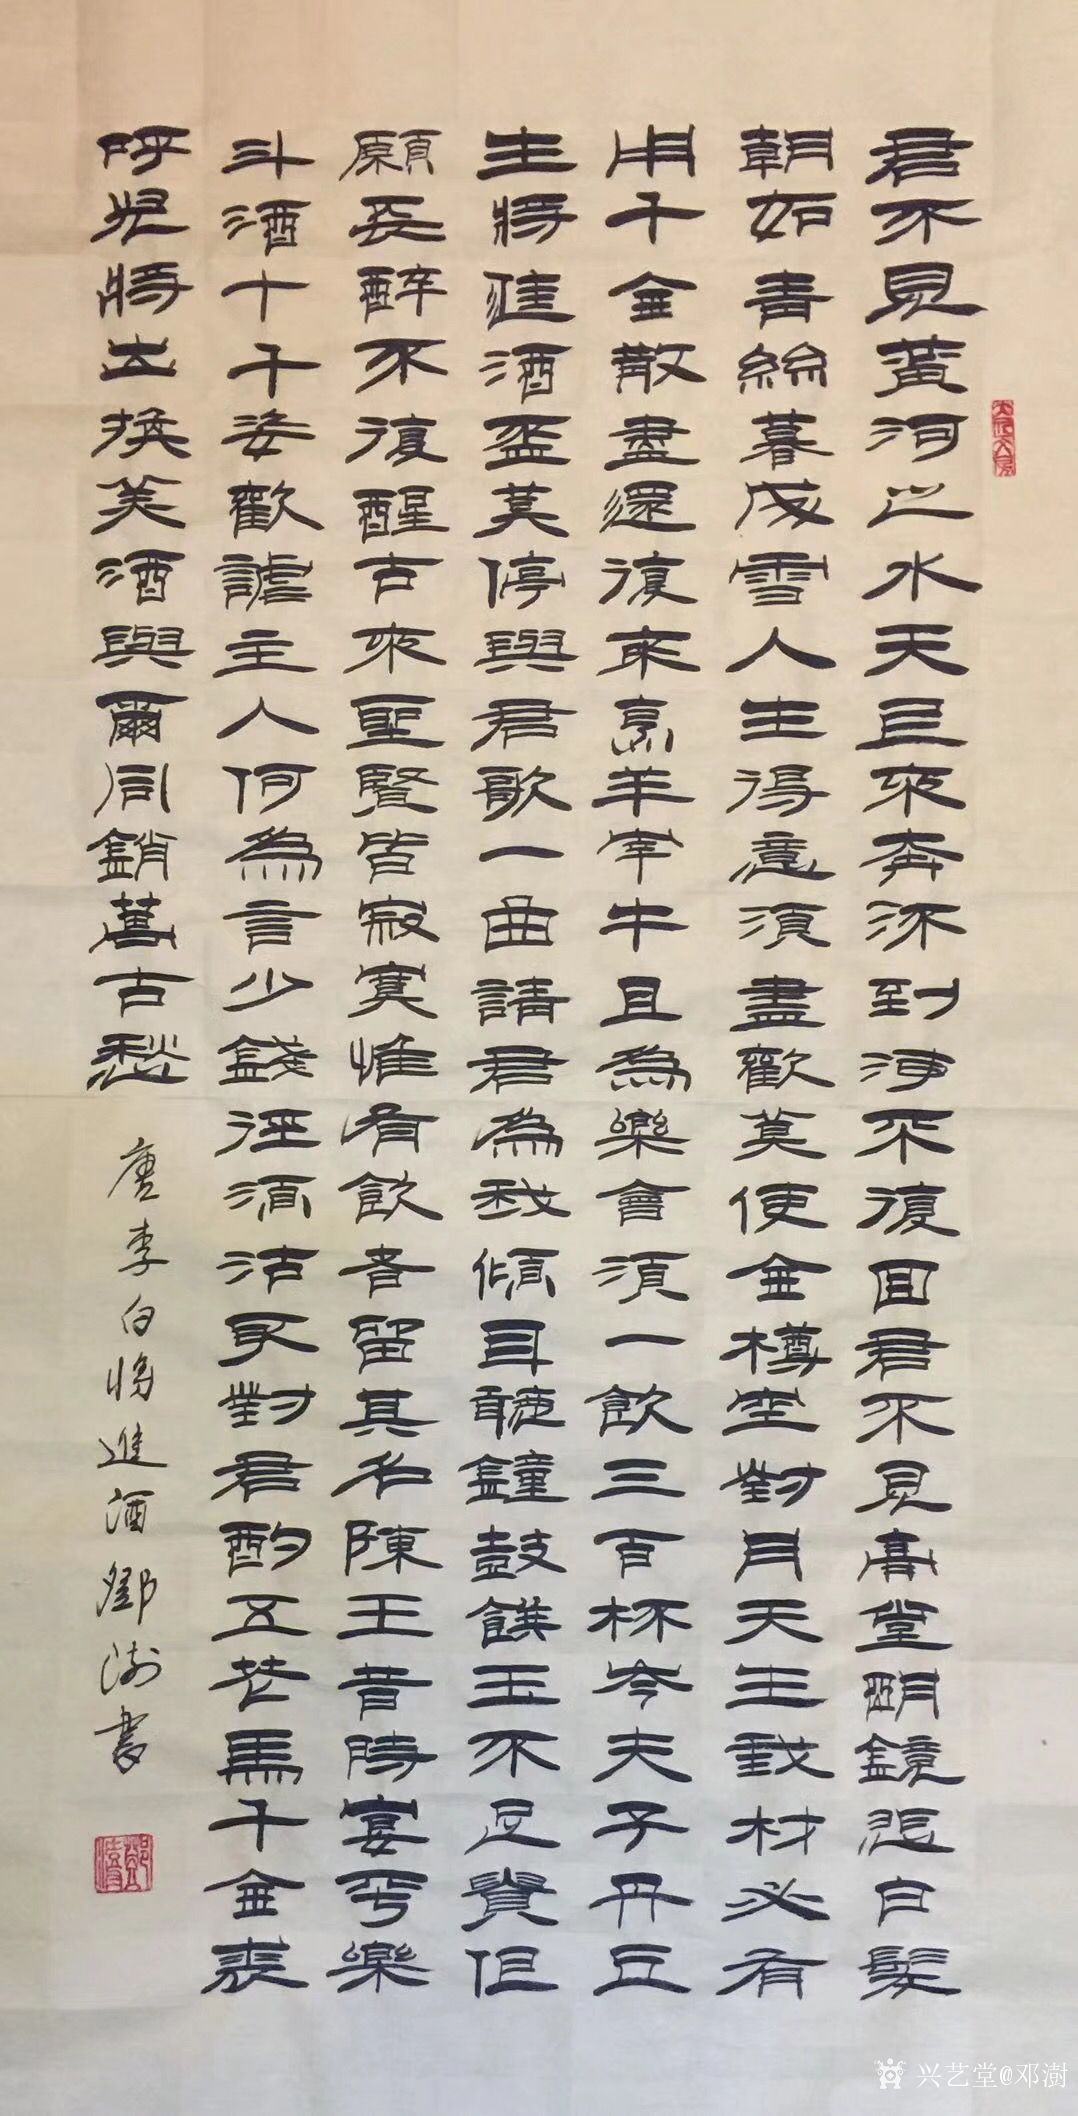 君不見黃河之水天上來奔流到海不復回君不見高堂明鏡悲白髮
朝如青絲暮成雪人生得意須盡歡莫使金樽空對月天生我材必有
用千金散盡還復來烹羊宰牛且為樂會須一飲三百杯岑夫子丹丘
生將進酒盃莫停與君歌一曲請君為我傾耳聽鐘鼓饌玉不足貴但
願長醉不復醒古來聖賢皆寂寞惟有飲者留其名陳王昔時宴平樂
斗酒十千恣歡謔主人何為言少錢徑須沽取對君酌五花馬千金裘
呼兒將出換美酒與爾同銷萬古愁
唐李白將進酒鄧澍書
兴艺堂@邓澍